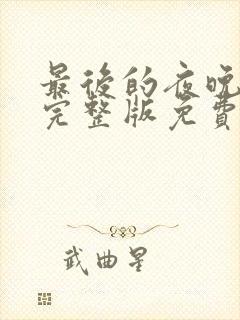 最後的夜晚
完整版免費
武曲星